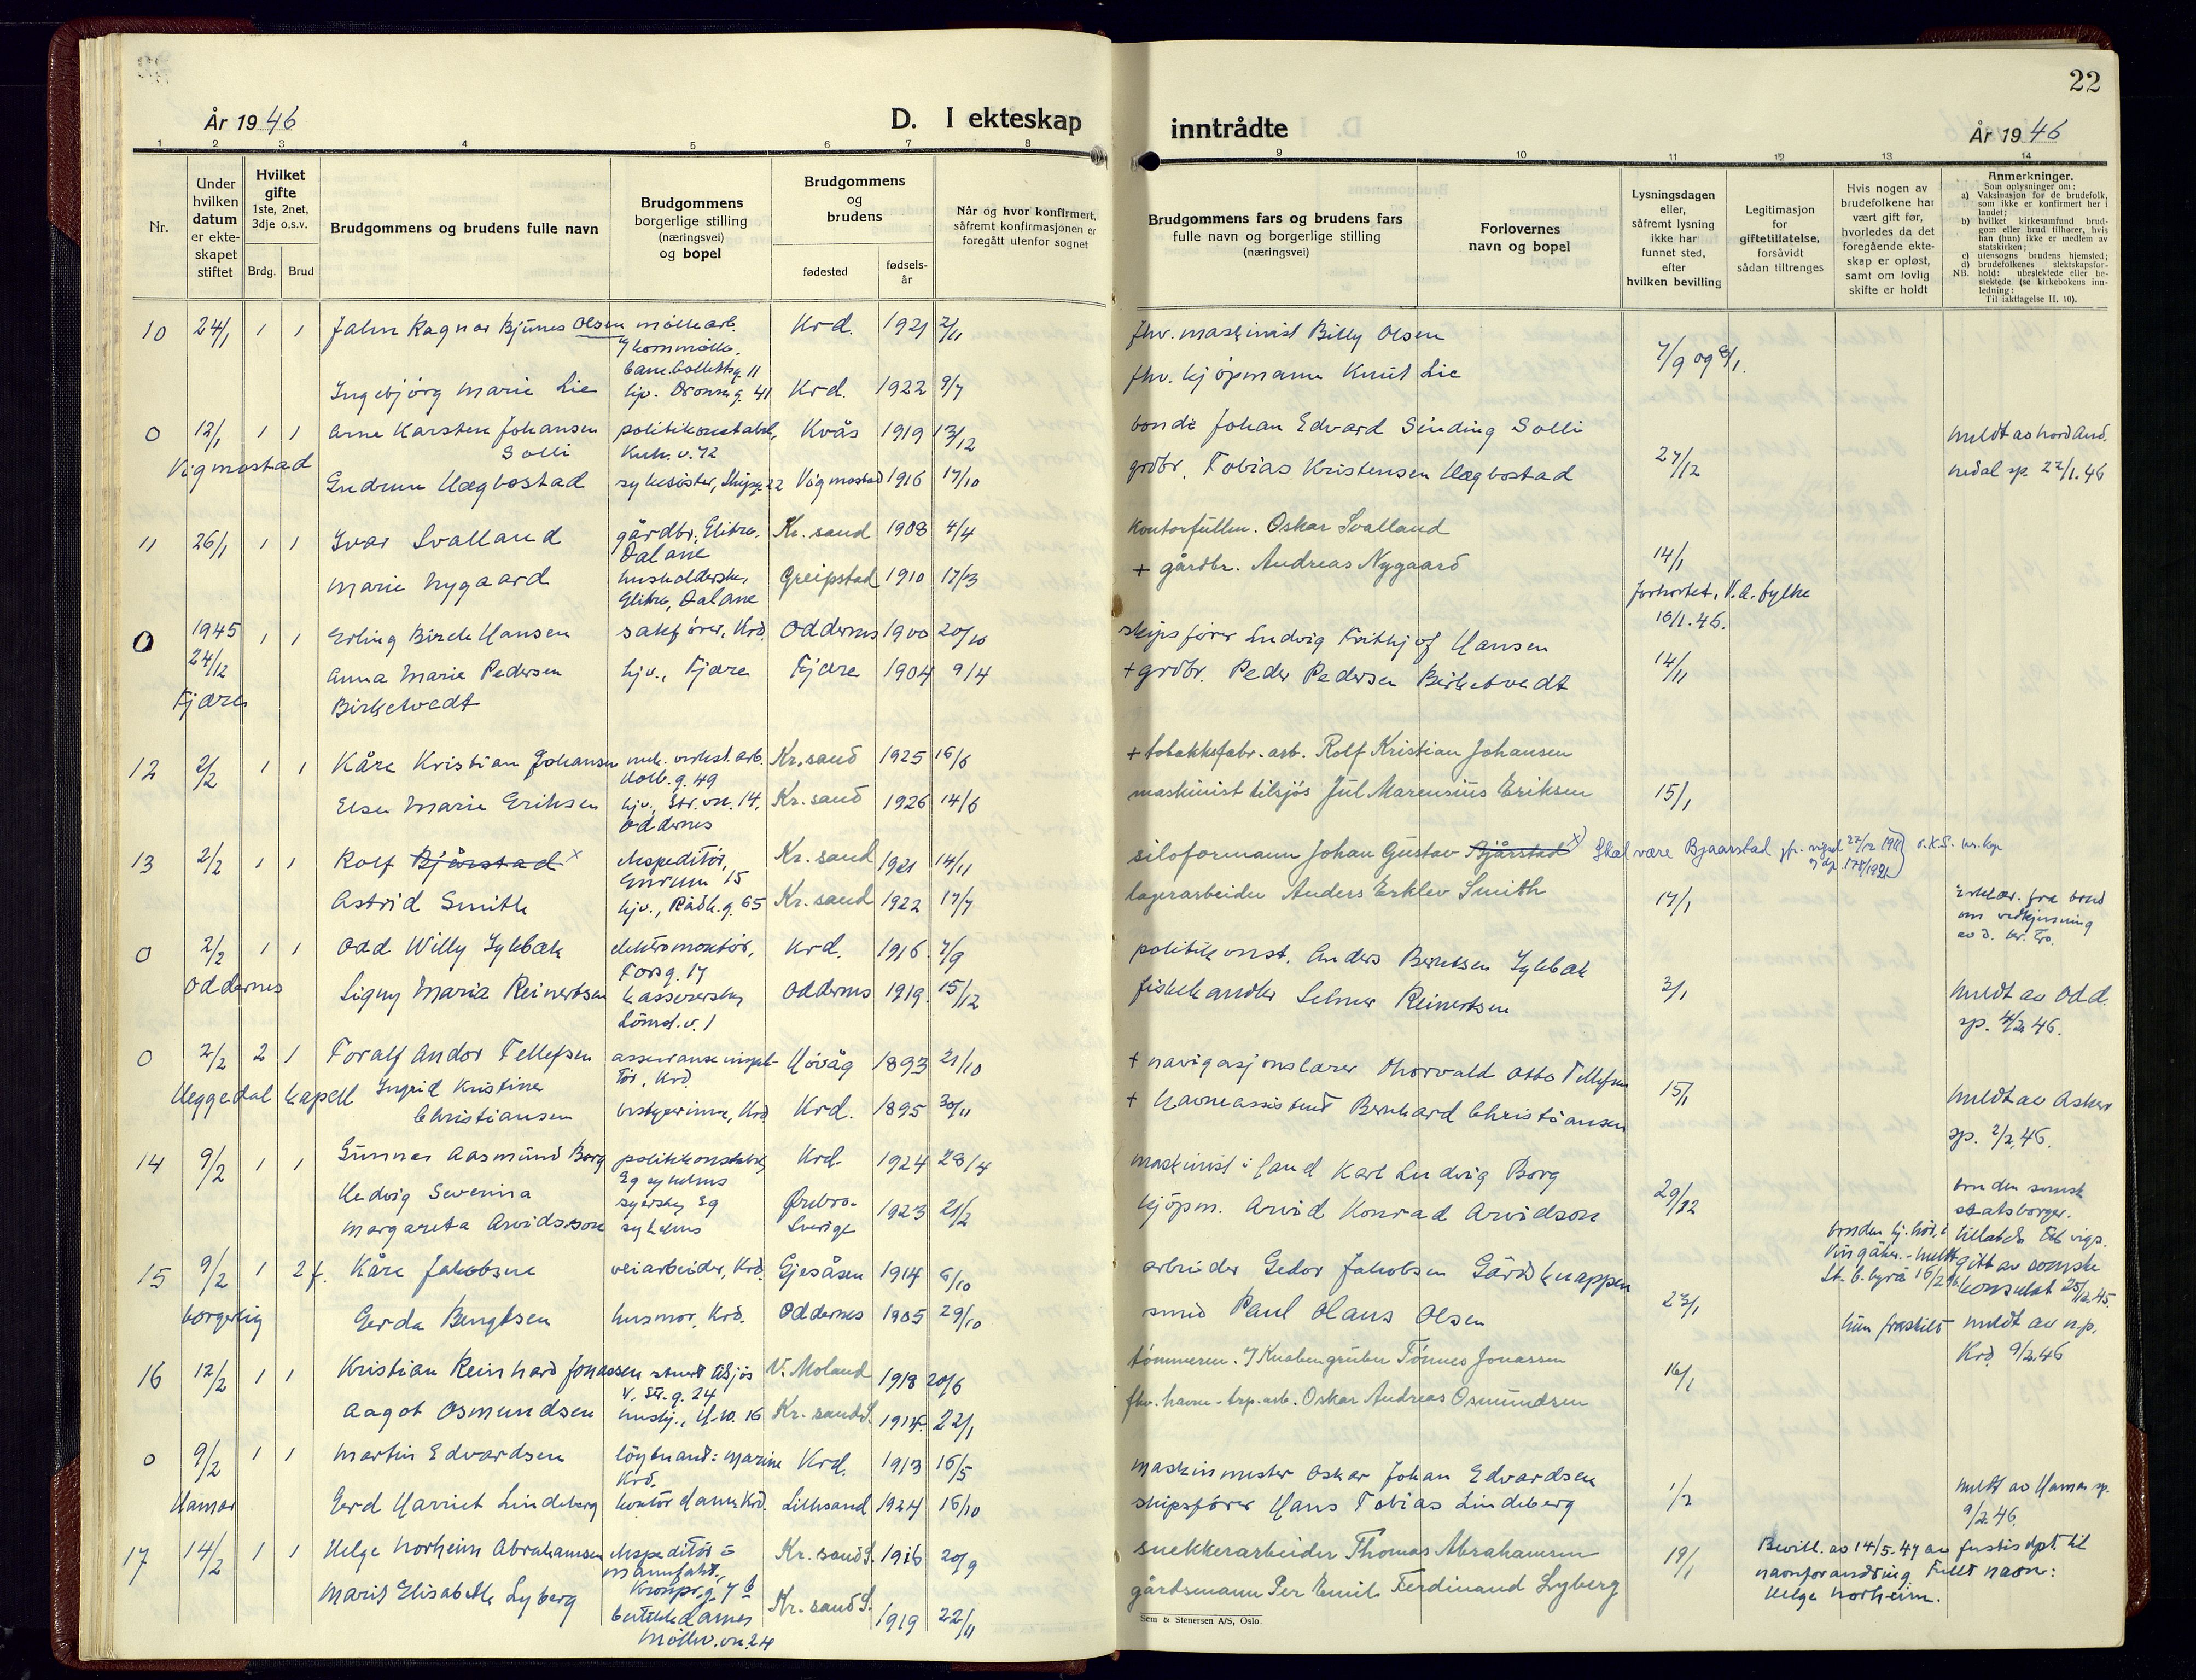 22
År 1946
D. I ekteskap
inntrådte
År 1946
1 2 3 4 5 6 7 8 9 10 11 12 13 14
Nr.
Under hvilken datum er ekteskapet stiftet
Hvilket gifte
1ste, 2net, 3dje o.s.v.
Brdg. Brud
Brudgommens og brudens fulle navn
Brudgommens borgerlige stilling (næringsvei) og bopel
Brudgommens og brudens
fødested
fødsels-år
Når og hvor konfirmert, såfremt konfirmasjonen er foregått utenfor sognet
Brudgommens fars og brudens fars fulle navn og borgerlige stilling (næringsvei)
Forlovernes navn og bopel
Lysningsdagen eller, såfremt lysning ikke har funnet sted, efter hvilken bevilling
Legitimasjon for giftetillatelse, forsåvidt sådan tiltrenges
Hvis nogen av brudefolkene har vært gift før, hvorledes da det foregående ekteskap er opløst, samt om lovlig skifte er holdt
Anmerkninger.
Som oplysninger om:
a) Vaksinasjon for de brudefolk, som ikke er konfirmert her i landet;
b) hvilket kirkesamfund brudgom eller brud tilhører, hvis han (hun) ikke er medlem av statskirken;
c) utensogns brudens hjemsted;
d) brudefolkenes slektskapsforhold: ubeslektede eller beslektede (se kirkebokens innledning:
NB. Til iakttagelse II, 10).
10 24/1 1 1 Jahn Ragnar Bjunes Olsen møllearb. Krd. 1921 2/11 fhv. maskinist Billy Olsen 7/9 og 8/1.
Kornmølle,
Cam. Collettsg. 11
Ingebjörg Marie Lie hjv. Dronn.g. 41 Krd. 1922 9/7 fhv. kjøpmann Knut Lie
0 12/1 1 1 Arne Karsten Johansen Solli politikonstabel, Kuh. v. 72 Kvås 1919 13/12 bonde Johan Edvard Sinding Solli 27/12 meldt av
Vigmostad
Gudrun Hægbostad sykesøster, 22 Vigmostad 1916 17/10 grdbr. Tobias Kristensen Hægbostad sp. 22/1.46
11 26/1 1 1 Ivar Svalland gårdbr. Dalane Kr.sand 1908 4/4 Kontorfullm. Oskar Svalland 14/1
Marie Nygaard husholderske, Dalane Greipstad 1910 17/3 + gårdbr. Andreas Nygaard
forkortet, V.A. fylke
16/1.46.
0 1945 24/12 1 1 Erling Birch Hansen sakfører, Krd. Oddernes 1900 20/10 skipsfører Ludvig Frithjof Hansen 14/11
Fjære Anna Marie Pedersen Birketvedt hjv., Fjære Fjære 1904 9/4 + grdbr. Peder Pedersen Birketvedt
12 2/2 1 1 Kåre Kristian Johansen mek. verkst. arb. Holb. g. 49 Kr.sand 1925 16/6 + tobakksfabr. arb. Rolf Kristian Johansen 15/1
Else Marie Eriksen hjv., Str. vn. 14, Oddernes Kr.sand 1926 14/6 maskinist tilsjøs Jul Marensius Eriksen
13 2/2 1 1 Rolf Bjårstad x ekspeditör, 15 Kr.sand 1921 14/11 siloformann Johan Gustav Bjårstad x) Skal være Bjaarstad
Astrid Smith hjv., Rådh. g. 65 Kr.sand 1922 17/7 lagerarbeider Anders Erklev Smith 17/1 Erklær. fra brud om
0 2/2 1 1 Odd Willy Sykbæk elektromontör, Torsg. 17 Krd. 1916 7/9 politikonst. Anders Berntsen Sykbæk 3/1
Oddernes Signy Maria Reinertsen kassererske 1 Oddernes 1919 15/12 fiskehandler Selmer Reinertsen meldt av Odd. sp. 4/2.46.
0 2/2 2 1 Toralf Andor Tellefsen assuranseinspektör, Krd. Høvåg 1893 21/10 + navigasjonslærer Thorvald Otto Tellefsen 15/1
Heggedal kapell Ingrid Kristine Christiansen bestyrerinne, Krd. Krd. 1895 30/11 + havneassistent Bernhard Christiansen meldt av Asker sp. 2/2.46.
14 9/2 1 1 Gunnar Aasmund Borg politikonstabel, Eg sykehus Krd. 1924 28/4 maskinist i land Karl Ludvig Borg 29/12
Hedvig Severina Margareta Arvidsson Eg sykehus Ørebro- Sverige 1923 21/2 kjöpm. Arvid Konrad Arvidson bruden svensk statsborger.
15 9/2 1 2 f. Kåre Jakobsen veiarbeider, Krd. Gjesåsen 1914 6/10 arbeider Gedor Jakobsen Gårdsknappen 23/1
borgerlig Gerda Bengtsen husmor, Krd. Oddernes 1905 29/10 smed Paul Olaus Olsen hun fraskilt meldt av n.p. Krd. 9/2.46
16 12/2 1 1 Kristian Reinhard Jonassen stuert tilsjös V. Str. g. 24 V. Moland 1918 20/6 tømmerm. v/Knabengruber Tönnes Jonassen 16/1
Aagot Osmundsen hushj., 16 Kr.sand S. 1914 22/1 fhv. havne-trp.arb. Oskar Andreas Osmundsen
0 9/2 1 1 Martin Edvardsen löytnant i marine Krd. Krd. 1913 16/5 maskinmester Oskar Johan Edvardsen 1/2
Hamar Gerd Harriet Lindeberg kontordame Krd. Lillesand 1924 16/10 skipsfører Hans Tobias Lindeberg meldt av Hamar sp. 9/2.46.
17 14/2 1 1 Helge Norheim Abrahamsen ekspeditör i manufakt., Kronpr.g. 7b Kr.sand S. 1916 20/9 snekkerarbeider Thomas Abrahamsen 19/1 Bevill. av 14/5.47 av justisdpt. til navneforandring. Fullt navn: Helge Norheim.
Marit Elisabeth Lyberg butikkdame, Møllev. vn. 24 Kr.sand S. 1919 22/11 gårdsmann Per Emil Ferdinand Lyberg
Sem & Stenersen A/S, Oslo.